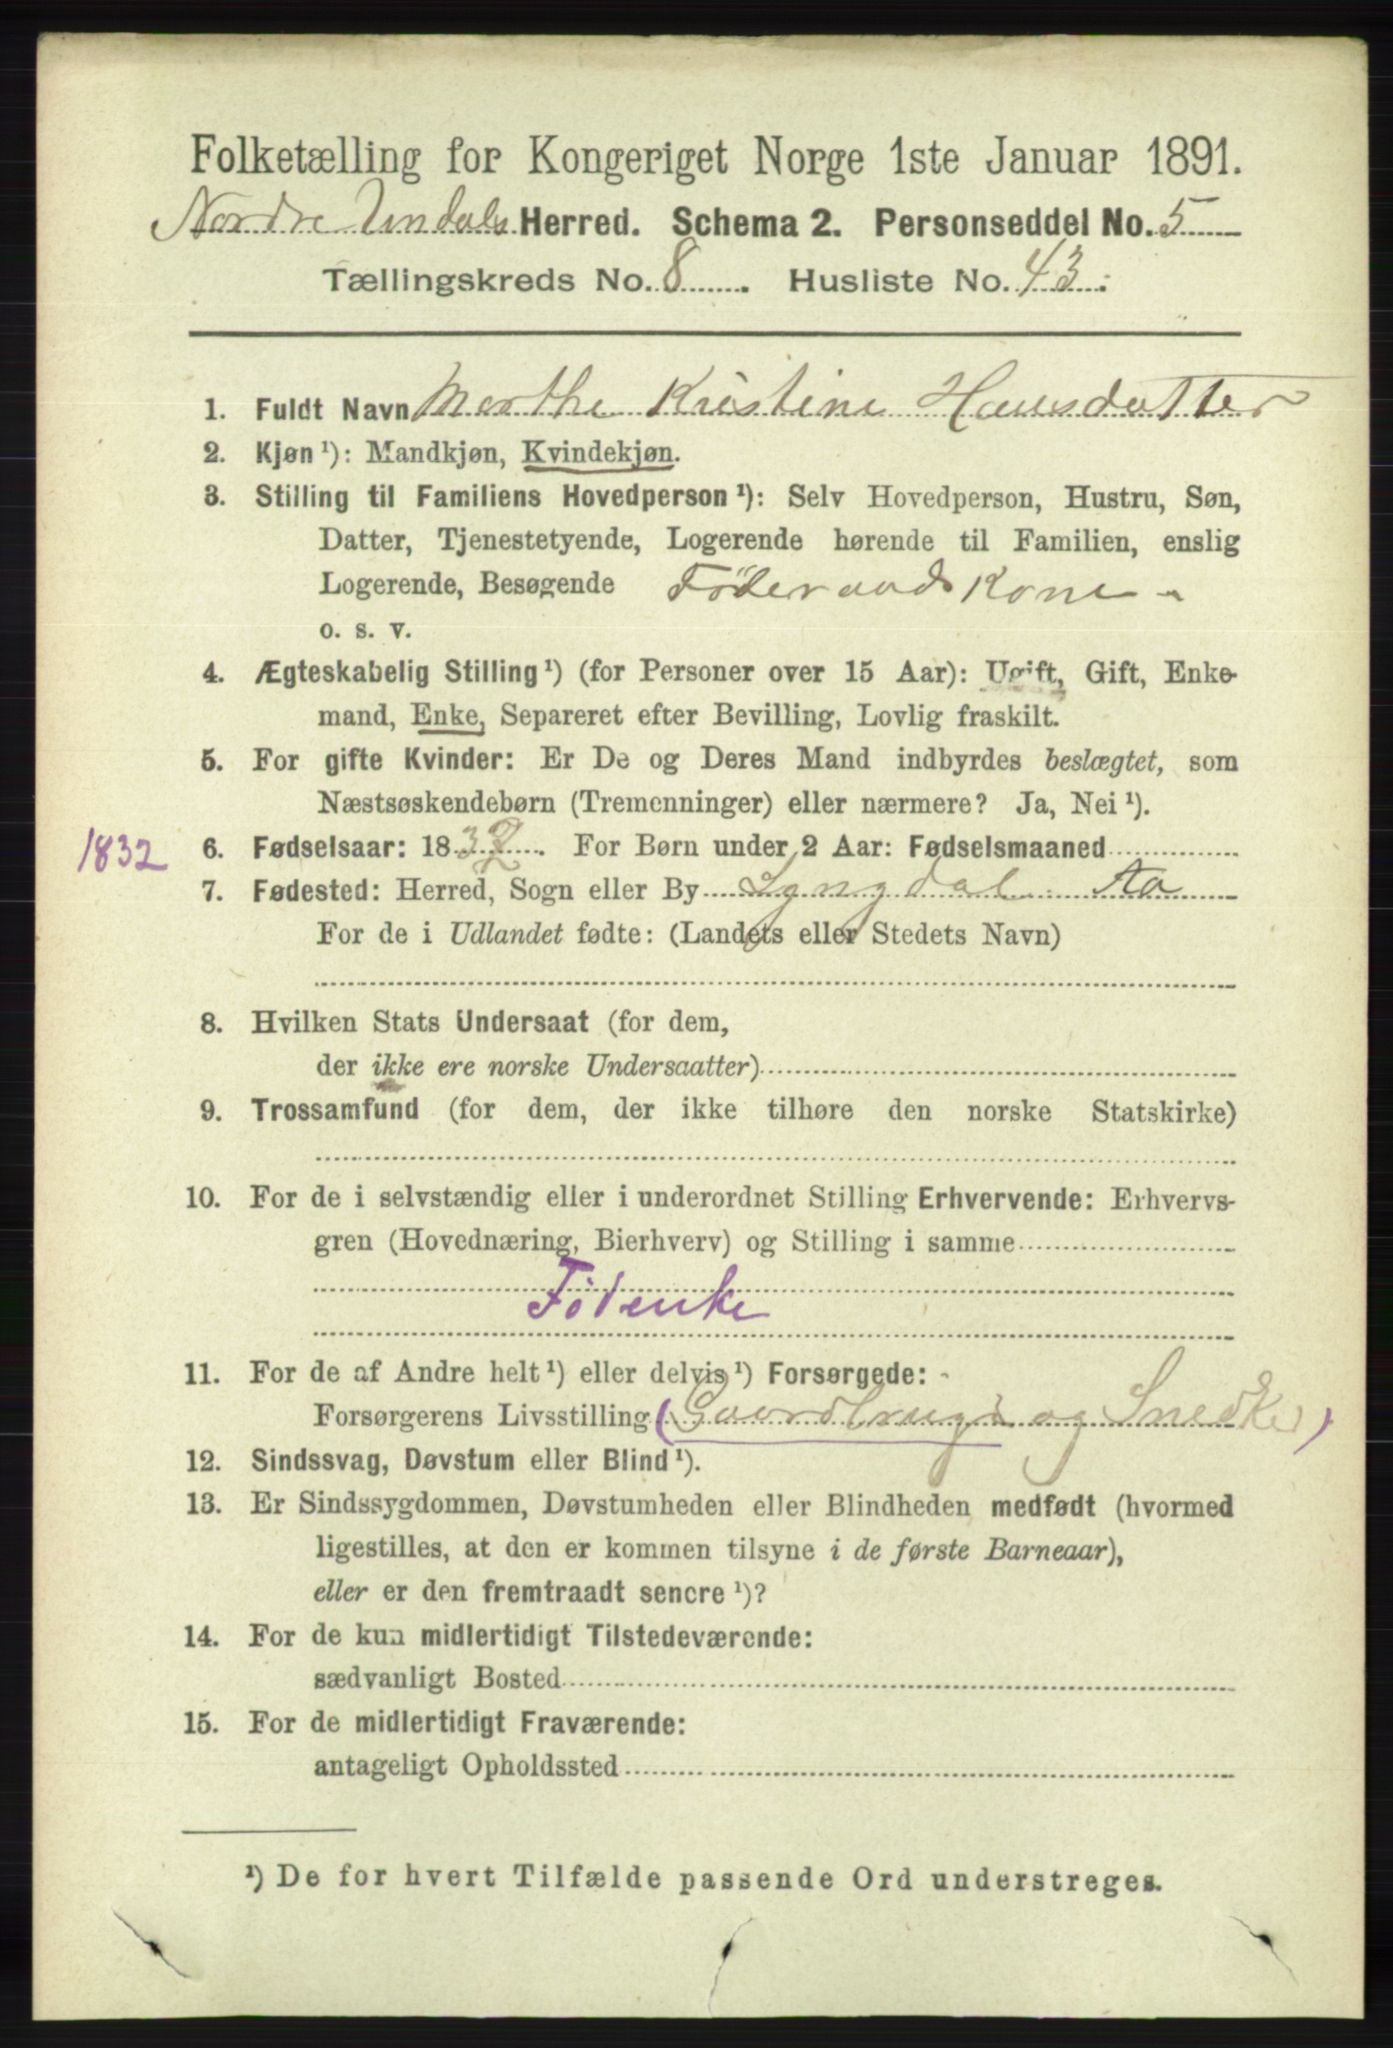 Folketælling for Kongeriget Norge 1ste Januar 1891.
Nordre Undals Herred. Schema 2. Personseddel No. 5
Tællingskreds No. 8. Husliste No. 43.
1. Fuldt Navn Marthe Kristine Hansdatter
2. Kjøn ¹): Mandkjøn, Kvindekjøn.
3. Stilling til Familiens Hovedperson ¹): Selv Hovedperson, Hustru, Søn,
Datter, Tjenestetyende, Logerende hørende til Familien, enslig
Logerende, Besøgende Föderaads Kone
o. s. v.
4. Ægteskabelig Stilling ¹) (for Personer over 15 Aar): Ugift, Gift, Enke-
mand, Enke, Separeret efter Bevilling, Lovlig fraskilt.
5. For gifte Kvinder: Er De og Deres Mand indbyrdes beslægtet, som
Næstsøskendebørn (Tremenninger) eller nærmere? Ja, Nei ¹).
1832 6. Fødselsaar: 1832. For Børn under 2 Aar: Fødselsmaaned
7. Fødested: Herred, Sogn eller By Lyngdal Aa
For de i Udlandet fødte: (Landets eller Stedets Navn)
8. Hvilken Stats Undersaat (for dem,
der ikke ere norske Undersaatter)
9. Trossamfund (for dem, der ikke tilhøre den norske Statskirke)
10. For de i selvstændig eller i underordnet Stilling Erhvervende: Erhvervs-
gren (Hovednæring, Bierhverv) og Stilling i samme
Födenke
11. For de af Andre helt ¹) eller delvis ¹) Forsørgede:
Forsørgerens Livsstilling (Gaardbruger og Snedker)
12. Sindssvag, Døvstum eller Blind ¹).
13. Er Sindssygdommen, Døvstumheden eller Blindheden medfødt (hvormed
ligestilles, at den er kommen tilsyne i de første Barneaar),
eller er den fremtraadt senere ¹)?
14. For de kun midlertidigt Tilstedeværende:
sædvanligt Bosted
15. For de midlertidigt Fraværende:
antageligt Opholdssted
¹) De for hvert Tilfælde passende Ord understreges.